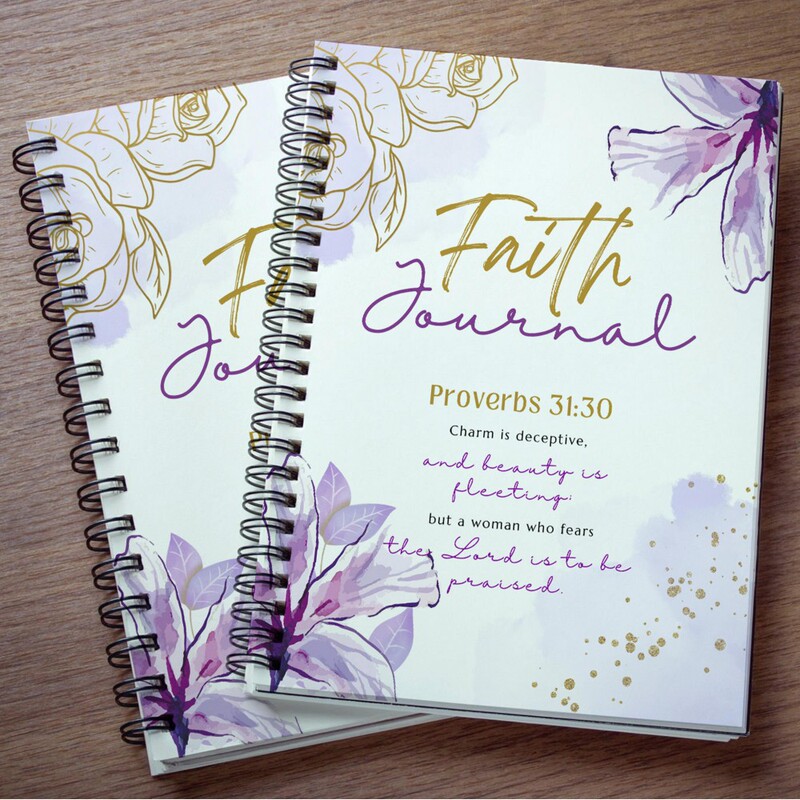 Faith
Journal
Proverbs 31:30
Charm is deceptive,
and beauty is
fleeting;
but a woman who fears
the Lord is to be
praised.
Fa
Jou